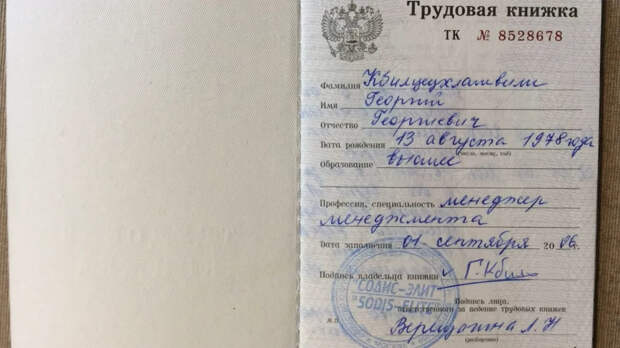 Трудовая книжка
ТК № 8528678
Фамилия
Имя Георгий
Отчество Георгиевич
Дата рождения 13 августа 1978 года
(число, месяц, год)
Образование высшее
Профессия, специальность менеджер
менеджмента
Дата заполнения 01 сентября 2006.
Подпись владельца книжки
"СОДИС-ЭЛИТ"
"SODIS-ELITE"
Подпись лица,
ответственного за ведение трудовых книжек
Л. Н
(разборчиво)